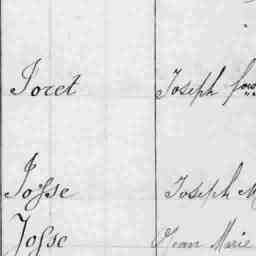 Joret Joseph fois
Josse Joseph M
Josse Jean Marie